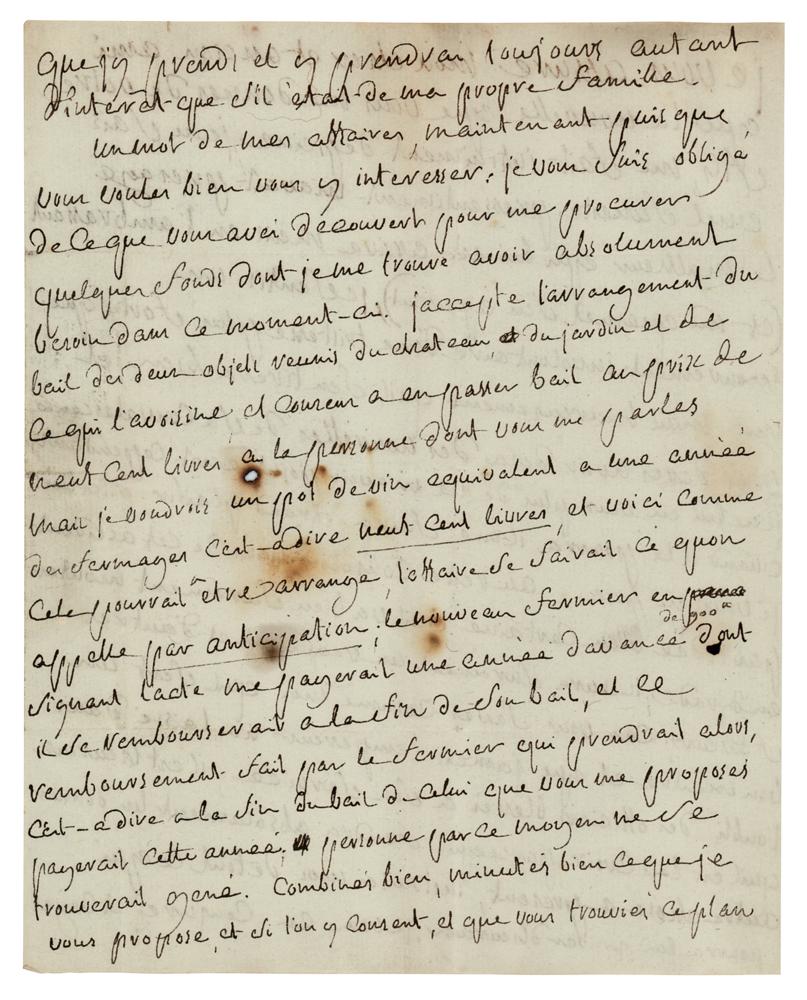 que j'y prends et y prendrai toujours autant
d'interêt que s'il etait de ma propre famille.
un mot de mes affaires, maintenant puis que
vous voules bien vous y interesser; je vous suis obligé
de ce que vous avez découvert pour me procurer
quelques fonds dont je me trouve avoir absolument
besoin dans ce moment-ci. j'accepte l'arrangement du
bail des deux objets reunis du chateau, du jardin et de
ce qui l'avoisine et consens a en passer bail au prix de
neuf cent livres a la personne dont vous me parles
mais je voudrois un pot de vin equivalent a une année
des fermages c'est-a dire neuf cent livres, et voici comme
cela pourrait etre arrangé, l'affaire se fairait ce qu'on
appelle par anticipation; le nouveau fermier en
signant l'acte me payerait une année d'avance de 900# dont
il se rembourserait a la fin de son bail, et ce
remboursement fait par le fermier qui prendrait alors,
c'est-a dire a la fin du bail de celui que vous me proposés
payerait cette année; personne par ce moyen ne se
trouverait gené. Combinés bien, minutés bien ce que je
vous propose, et si l'on y consent, et que vous trouviés ce plan